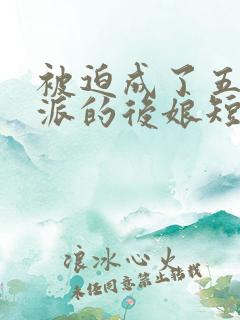 被迫成了五
派的後娘短
浪冰心火
未经同意禁止转载